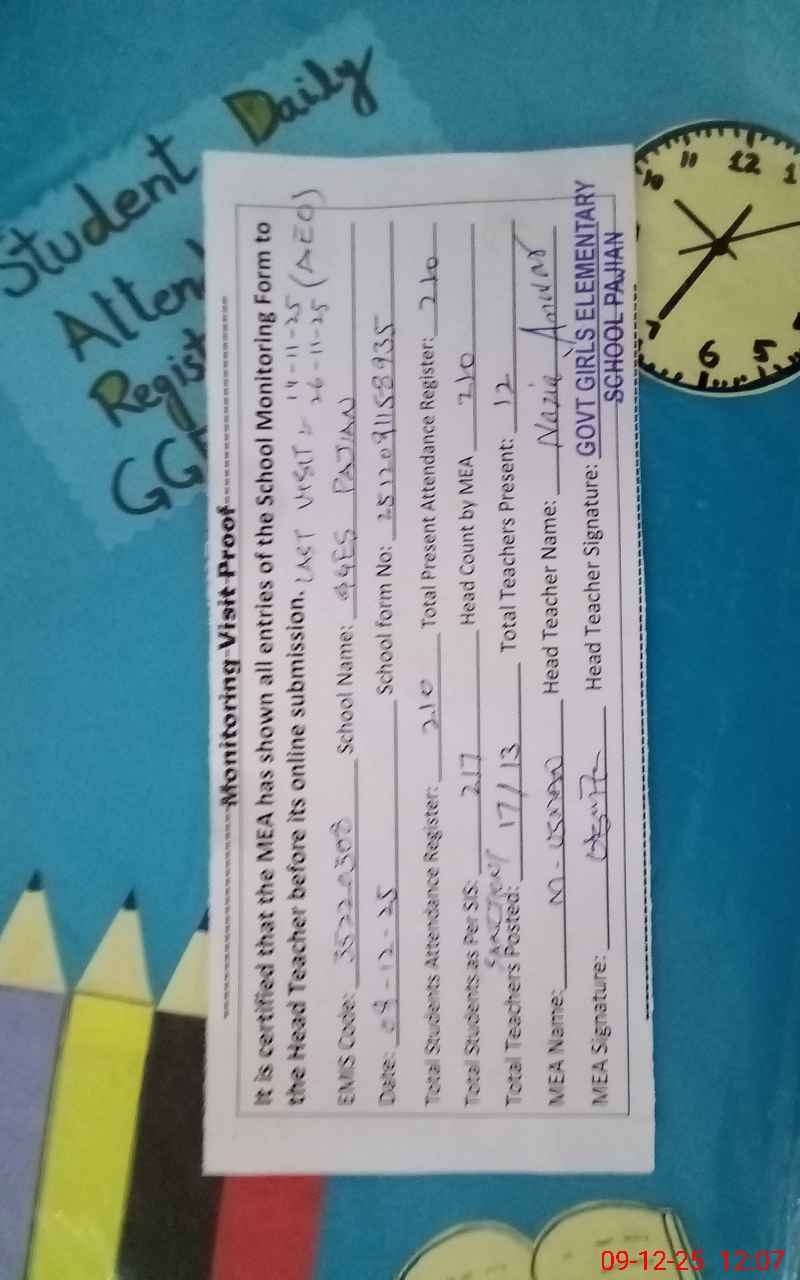 Student Daily
Atten
Regist
GG
Monitoring Visit Proof
It is certified that the MEA has shown all entries of the School Monitoring Form to
the Head Teacher before its online submission. LAST VISIT :- 14-11-25
26-11-25 (AEO)
EMIS Code: 35220308 School Name: GGES PAJIAN
Date: 09-12-25 School form No: 2512091158935
Total Students Attendance Register: 210 Total Present Attendance Register: 210
Total Students as Per SIS: 217 Head Count by MEA 210
SANCTION/
Total Teachers Posted: 17/13 Total Teachers Present: 12
MEA Name: M-USMAN Head Teacher Name: Nazia Anwar
MEA Signature: Head Teacher Signature: GOVT GIRLS ELEMENTARY
SCHOOL PAJIAN
10 11 12 1
7 6 5
09-12-25 12:07